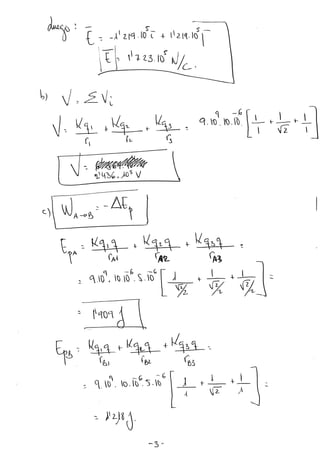 luego: E = -1'219.10^5 i + 1'219.10^5 j
|E| = 1'723.10^5 N/C.
b) V = ΣVi
V = Kq1/r1 + Kq2/r2 + Kq3/r3 = 9.10^9.10.10^-6 [1/1 + 1/√2 + 1/1]
V = 2'436.10^5 V
c) W A→B = -ΔEp
EpA = Kq1q/rA1 + Kq2q/rA2 + Kq3q/rA3 =
= 9.10^9.10.10^-6.5.10^-6 [1/√2/2 + 1/√2/2 + 1/√2/2] =
= 1'909 J
EpB = Kq1q/rB1 + Kq2q/rB2 + Kq3q/rB3 =
= 9.10^9.10.10^-6.5.10^-6 [1/1 + 1/√2 + 1/1] =
= 1'218 J.
-3-